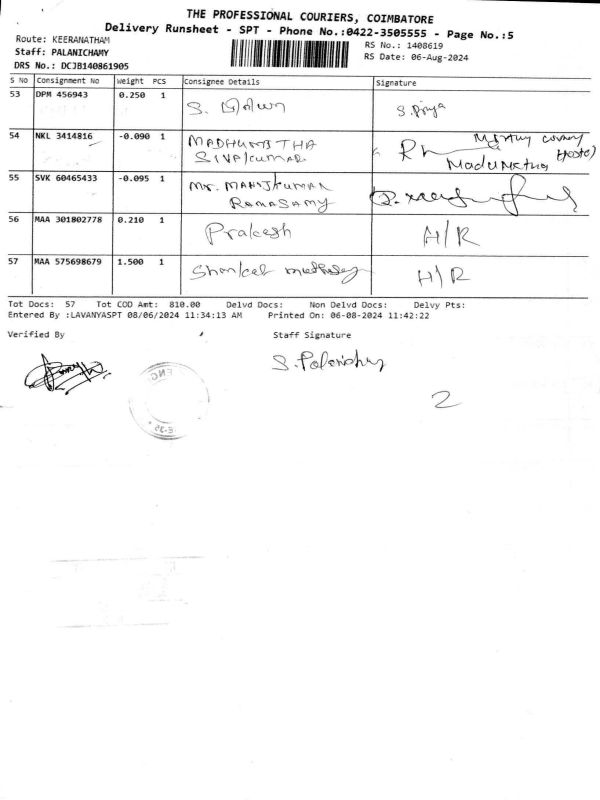 THE PROFESSIONAL COURIERS, COIMBATORE
Delivery Runsheet - SPT - Phone No.:0422-3505555 - Page No.:5
Route: KEERANATHAM
RS No.: 1408619
Staff: PALANICHAMY
RS Date: 06-Aug-2024
DRS No.: DCJB140861905
S No Consignment No Weight PCS Consignee Details Signature
53 DPM 456943 0.250 1 S. S. Priya
54 NKL 3414816 -0.090 1 MADHUMITHA
SIVAKUMAR
55 SVK 60465433 -0.095 1 Mr. MANOJKUMAR
RAMASAMY
56 MAA 301802778 0.210 1 Prakash H/R
57 MAA 575698679 1.500 1 H/R
Tot Docs: 57 Tot COD Amt: 810.00 Delvd Docs: Non Delvd Docs: Delvy Pts:
Entered By :LAVANYASPT 08/06/2024 11:34:13 AM Printed On: 06-08-2024 11:42:22
Verified By Staff Signature
2